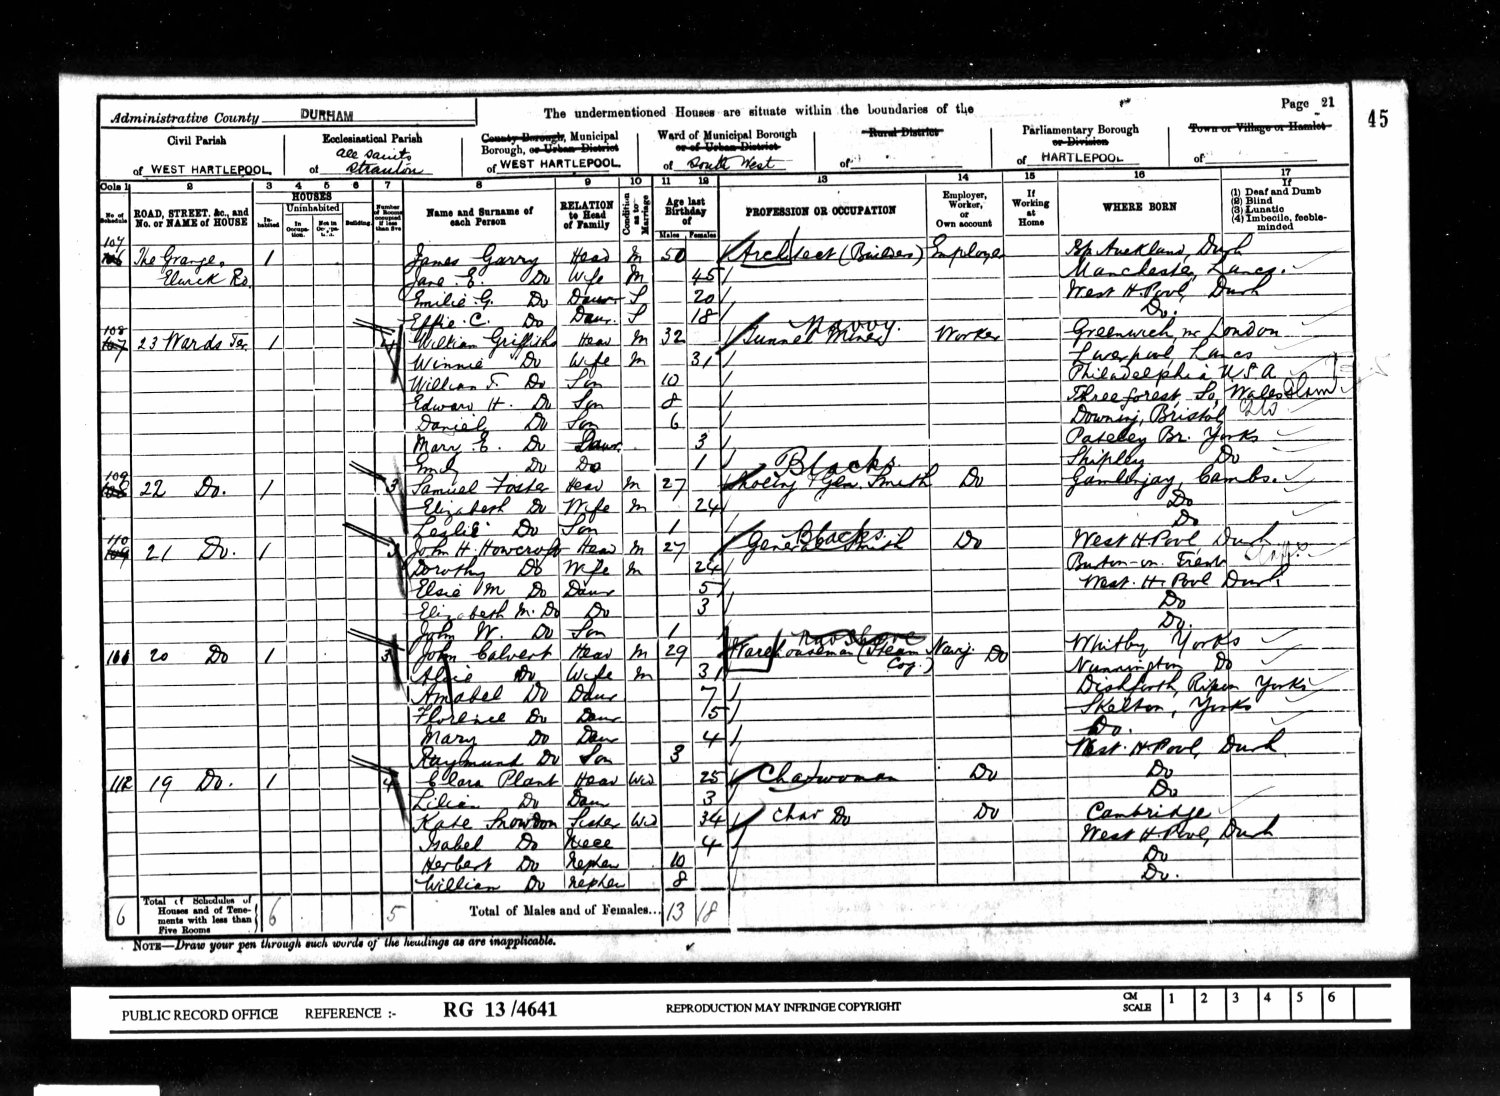 Page 21
45
Administrative County DURHAM The undermentioned Houses are situate within the boundaries of the
Civil Parish of WEST HARTLEPOOL
Ecclesiastical Parish of All Saints Stranton
County Borough, Municipal Borough, or Urban District of WEST HARTLEPOOL
Ward of Municipal Borough or of Urban District of South West
Rural District of
Parliamentary Borough or Division of HARTLEPOOL
Town or Village or Hamlet of
Cols 1 2 3 4 5 6 7 8 9 10 11 12 13 14 15 16 17
No. of Schedule
ROAD, STREET, &c., and No. or NAME of HOUSE
HOUSES
Inhabited
Uninhabited
In Occupation.
Not in Occupation.
Building.
Number of Rooms occupied if less than five
Name and Surname of each Person
RELATION to Head of Family
Condition as to Marriage
Age last Birthday of
Males Females
PROFESSION OR OCCUPATION
Employer, Worker, or Own account
If Working at Home
WHERE BORN
If (1) Deaf and Dumb (2) Blind (3) Lunatic (4) Imbecile, feeble-minded
107 106 The Grange, 1 James Garry Head M 50 Architect (Builder) Employer Bp Auckland, Durh
Elwick Rd. Jane E. Do Wife M 45 Manchester, Lancs.
Emilie G. Do Daur S 20 West H Pool, Durh
Effie C. Do Daur. S 18 Do.
108 107 23 Wards Ter. 1 4 William Griffiths Head M 32 Navvy. Tunnel Miner Worker Greenwich, nr London
Winnie Do Wife M 31 Liverpool, Lancs
William T. Do Son 10 Philadelphia U.S.A
Edward H. Do Son 8 Threeforest, So. Wales Glam
Daniel Do Son 6 Downing, Bristol Glo
Mary E. Do Daur. 3 Pateley Br. Yorks
Emily Do Do 1 Shipley Do
109 108 22 Do. 1 3 Samuel Foster Head M 27 Blacks. Shoeing & Gen. Smith Do Gamlingay, Cambs.
Elizabeth Do Wife M 24 Do
Leslie Do Son 1 Do
110 109 21 Do. 1 3 John H. Howcroft Head M 27 Blacks. General Smith Do West H Pool Durh
Dorothy Do Wife M 24 Burton-on-Trent Staffs
Elsie M Do Daur 5 West. H. Pool Durh
Elizabeth M. Do Do 3 Do
John W. Do Son 1 Do.
111 20 Do 1 3 John Calvert Head M 29 Warehouseman (Steam Navg. Coy.) Do Whitby Yorks
Alice Do Wife M 31 Nunnington Do
Amabel Do Daur 7 Dishforth, Ripon Yorks
Florence Do Daur 5 Skelton, Yorks
Mary Do Daur 4 Do.
Raymund Do Son 3 West. H. Pool, Durh
112 19 Do. 1 4 Clara Plant Head Wid 25 Charwoman Do Do
Lilian Do Daur 3 Do
Kate Snowdon Sister Wid 34 Char Do Do Cambridge
Isabel Do Niece 4 West H Pool, Durh
Herbert Do Nephew 10 Do
William Do Nephew 8 Do.
6 Total of Schedules of Houses and of Tenements with less than Five Rooms 6 5 Total of Males and of Females... 13 18
NOTE—Draw your pen through such words of the headings as are inapplicable.
PUBLIC RECORD OFFICE REFERENCE :- RG 13/4641 REPRODUCTION MAY INFRINGE COPYRIGHT CM SCALE 1 2 3 4 5 6